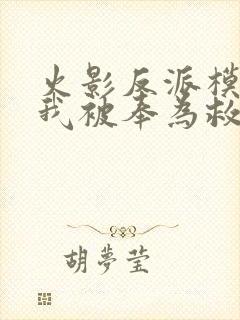 火影反派模
我被奉為救
胡夢莹